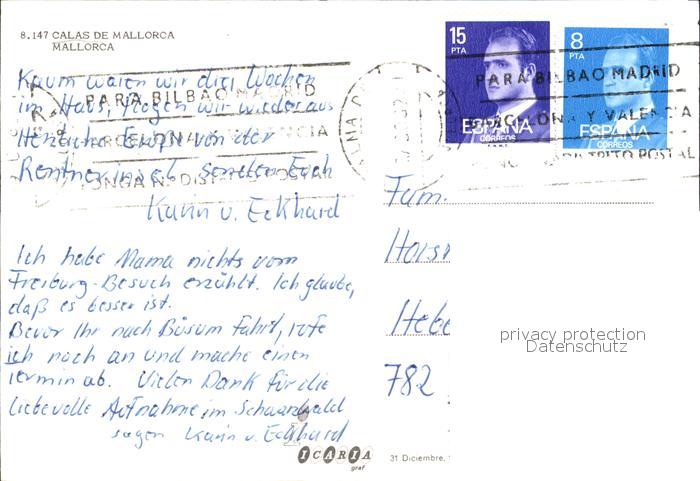 8.147 CALAS DE MALLORCA
MALLORCA
Kaum waren wir drei Wochen
im Haus, flogen wir wieder aus
Herzliche Grüße von der
Rentnerinsel senden Euch
Karin u. Eckhard
Ich habe Mama nichts vom
Freiburg-Besuch erzählt. Ich glaube,
daß es besser ist.
Bevor Ihr nach Büsum fahrt, rufe
ich noch an und mache einen
Termin ab. Vielen Dank für die
liebevolle Aufnahme im Schwarzwald
sagen Karin u. Eckhard
ICARIA
graf
31 Diciembre,
15
PTA
ESPAÑA
CORREOS
8
PTA
ESPAÑA
CORREOS
PARA BILBAO MADRID
BARCELONA Y VALENCIA
PONGA Nº DISTRITO POSTAL
PARA BILBAO MADRID
BARCELONA Y VALENCIA
DISTRITO POSTAL
Fam.
Horst
Hebe
782
privacy protection
Datenschutz